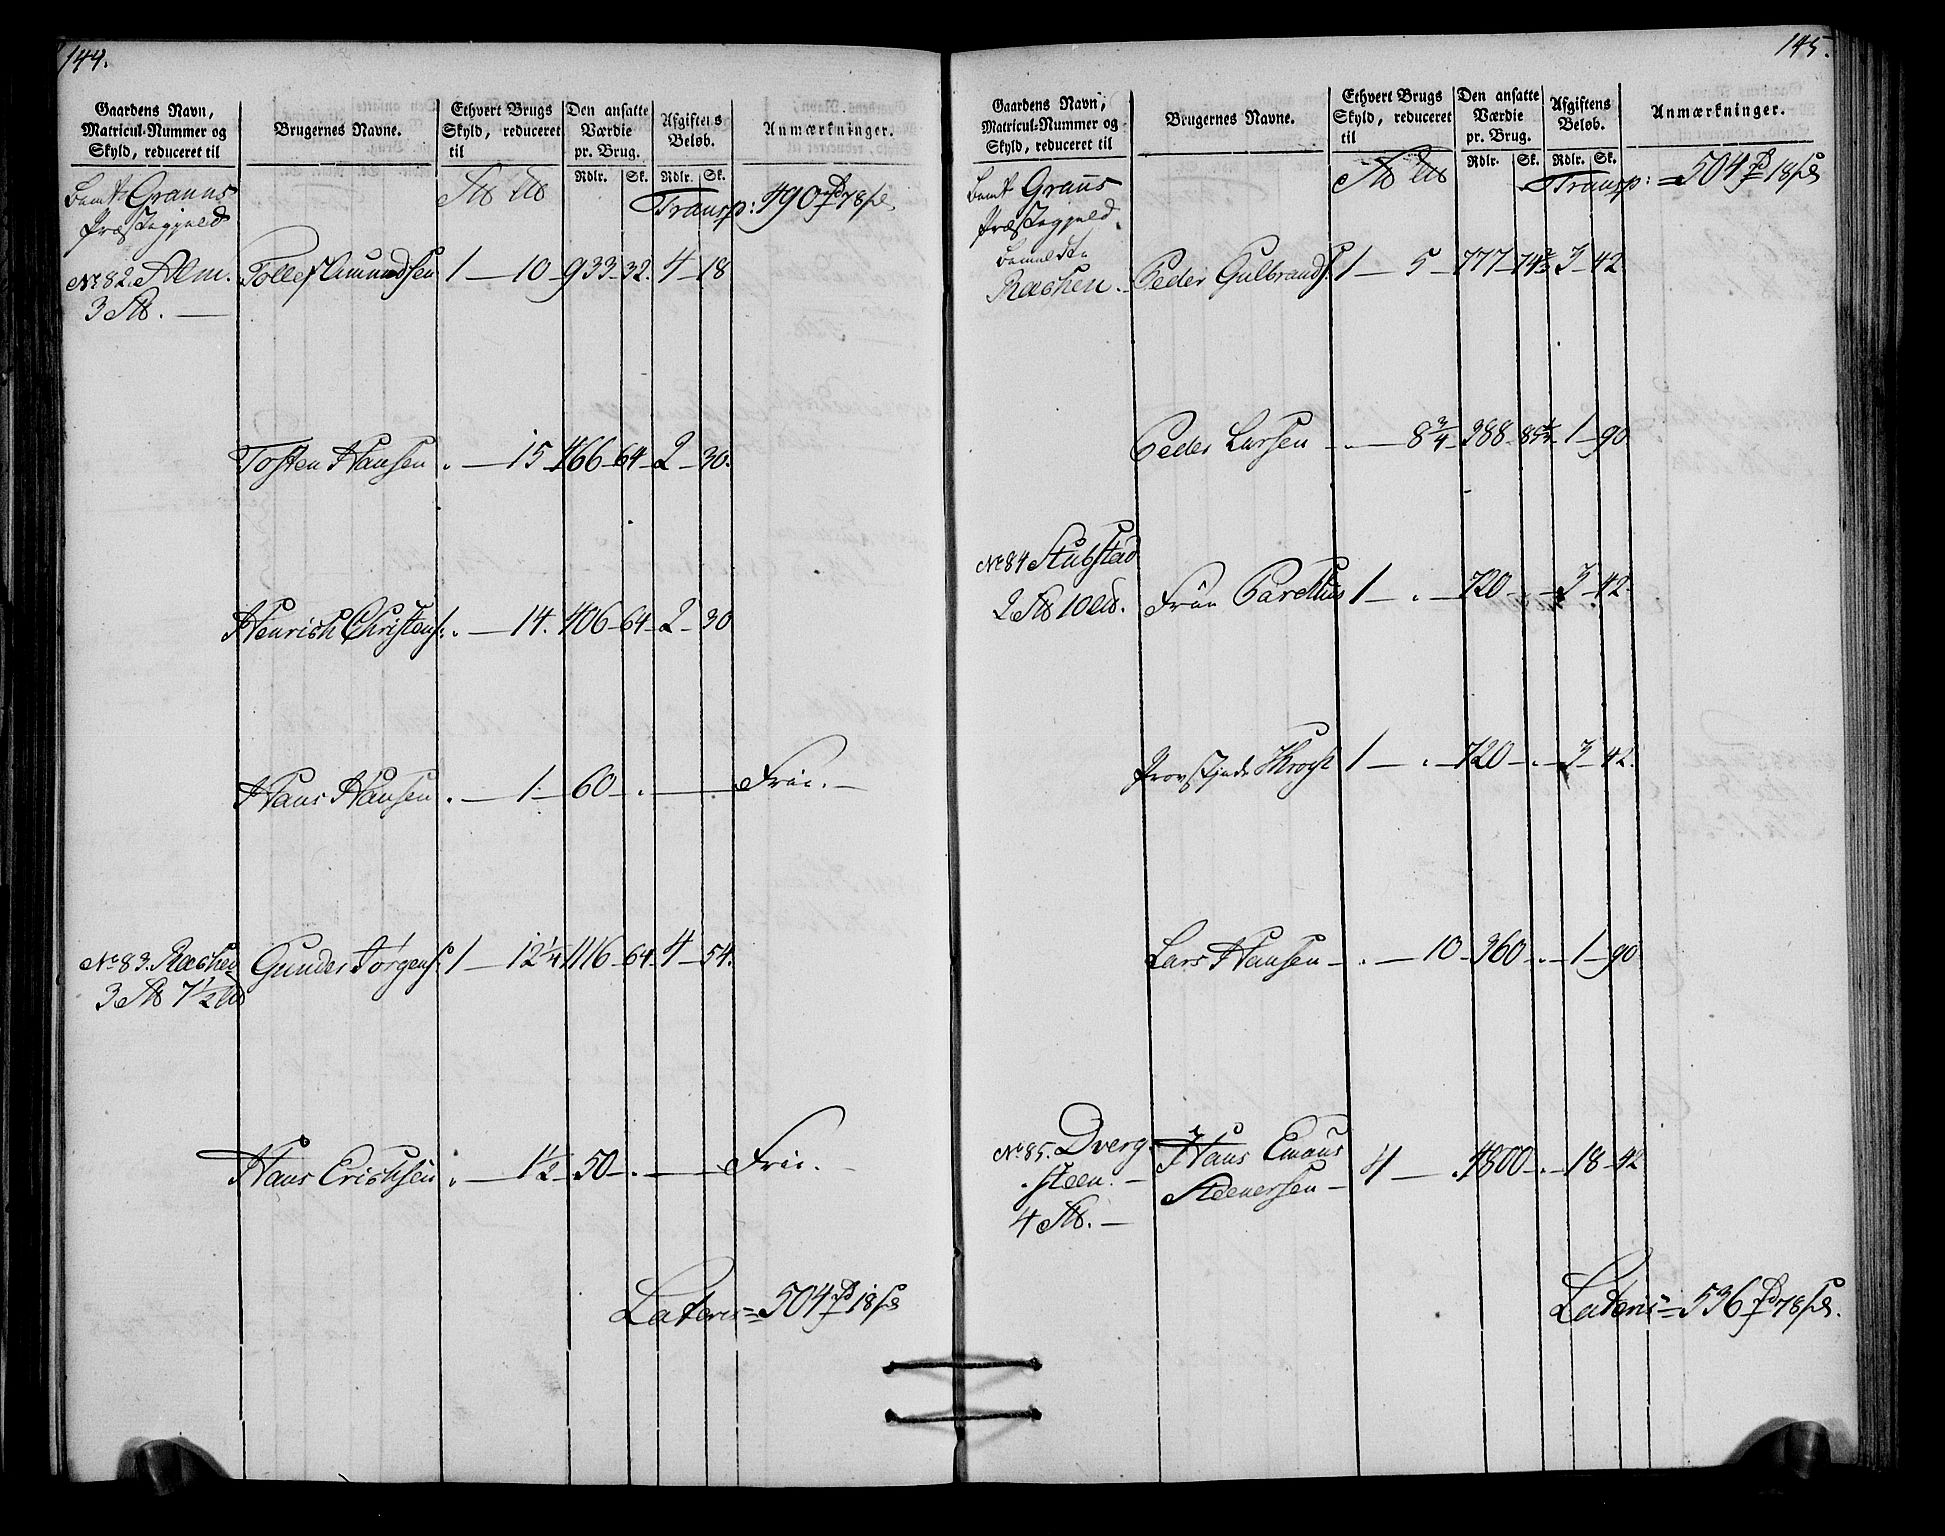 144.
Gaardens Navn, Matricul-Nummer og Skyld, reduceret til
Brugernes Navne.
Ethvert Brugs Skyld, reduceret til
Den ansatte Værdie pr. Brug.
Rdlr. Sk.
Afgiftens Beløb.
Rdlr. Sk.
Anmærkninger.
bemt Grans
Præstegjeld
Transp: 490 78
No 82. Alm. Tollef Amundsen 1 — 10 — 933 — 32. 4 — 18
3
Tosten Hansen . — 15 — 466 — 64 — 2 — 30.
Henrich Christens: . — 14. 406 — 64 — 2 — 30
Hans Hansen . — 1. — 60 — . — Frie. —
No 83. Rækken Gunder Jørgens: 1 — 12 1/4 1116 — 64. 4 — 54.
3 7 1/2
Hans Erichsen . — 1 1/2 — 50 — . — Frie. —
Lateris = 504 18
145.
Gaardens Navn, Matricul-Nummer og Skyld, reduceret til
Brugernes Navne.
Ethvert Brugs Skyld, reduceret til
Den ansatte Værdie pr. Brug.
Rdlr. Sk.
Afgiftens Beløb.
Rdlr. Sk.
Anmærkninger.
bemt Grans
Præstegjeld.
Transp: = 504 18
bemeldte
Rækken. Peder Gulbrands: 1 — 5 — 777 — 3 — 42
Peder Larsen . — 8 3/4 — 388 — 1 — 90
No 84 Stubstad
2 10. Frue 1 — . — 720 — 3 — 42.
1 — . — 720 — . — 3 — 42.
Lars Hansen — . — 10 — 360 — . — 1 — 90
No 85. Dverg-
steen. —
4 . —
Hans Emaus
Steenersen — 4 — . 4800 — . — 18 — 42
Lateris = 536 78